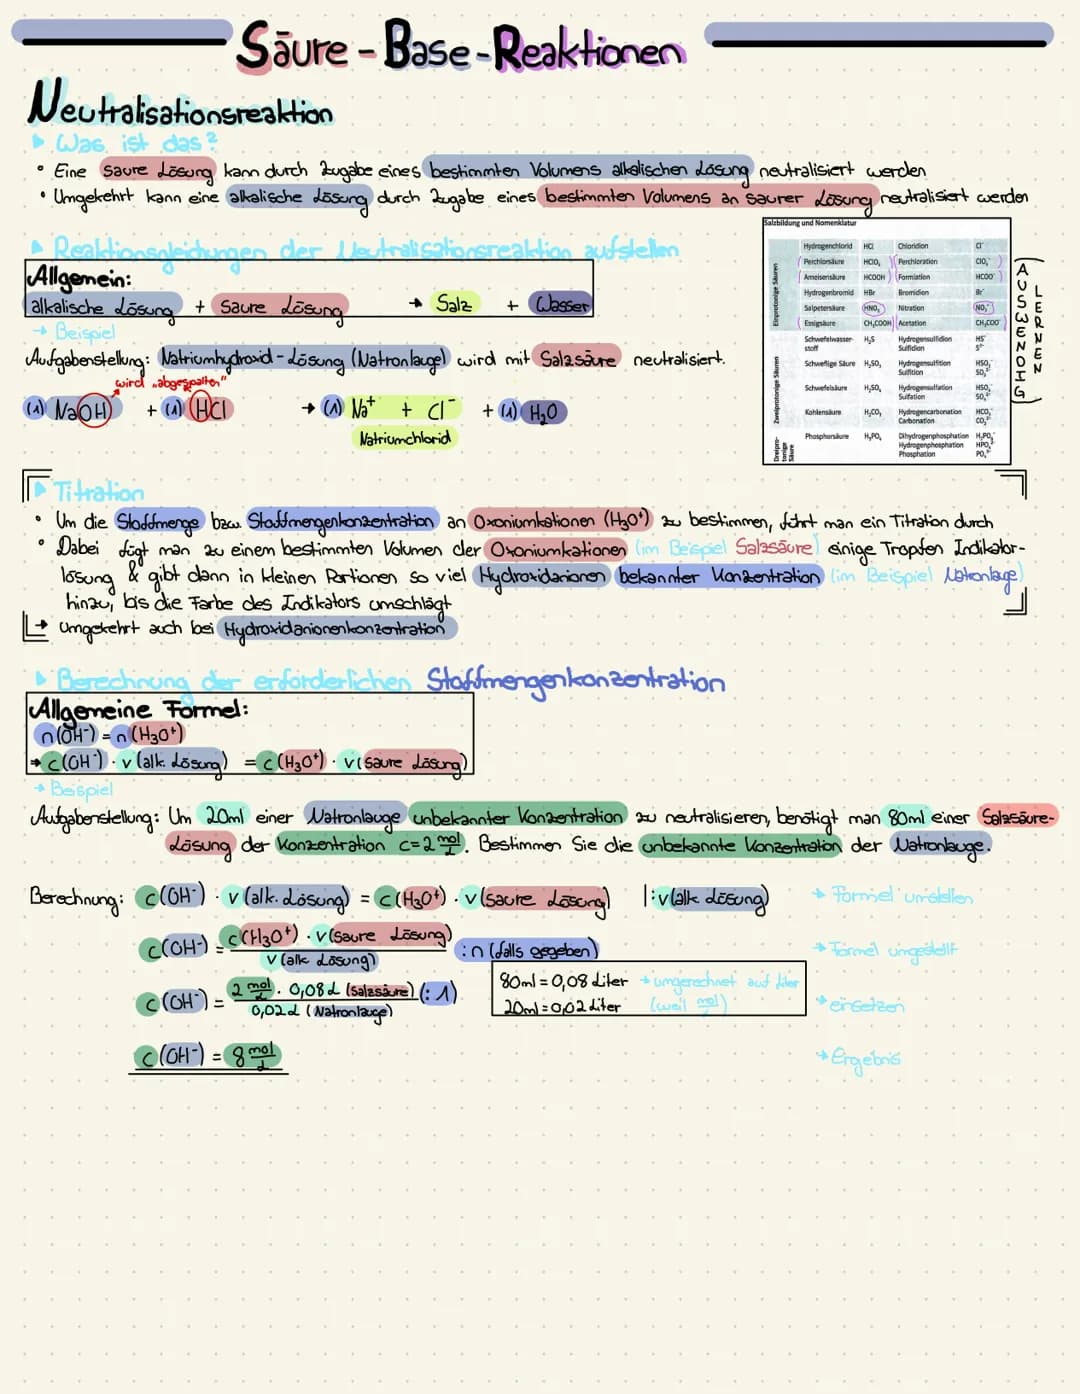 Säure-Base-Reaktionen
Neutralisationsreaktion
▶ Was ist das?
• Eine saure Lösung kann durch Zugabe eines bestimmten Volumens alkalischen Lösung neutralisiert werden
• Umgekehrt kann eine alkalische Lösung durch Zugabe eines bestimmten Volumens an saurer Lösung neutralisiert werden
▶ Reaktionsgleichungen der Neutralisationsreaktion aufstellen
Allgemein:
alkalische Lösung + Saure Lösung → Salz + Wasser
→ Beispiel
Aufgabenstellung: Natriumhydroxid-Lösung (Natronlauge) wird mit Salzsäure neutralisiert.
wird „abgespalten"
(1) NaOH + (1) HCl → (1) Na⁺ + Cl⁻ + (1) H₂O
Natriumchlorid
Salzbildung und Nomenklatur
Einprotonige Säuren
Hydrogenchlorid HCl Chloridion Cl⁻
Perchlorsäure HClO₄ Perchloration ClO₄⁻
Ameisensäure HCOOH Formiation HCOO⁻
Hydrogenbromid HBr Bromidion Br⁻
Salpetersäure HNO₃ Nitration NO₃⁻
Essigsäure CH₃COOH Acetation CH₃COO⁻
Zweiprotonige Säuren
Schwefelwasser- H₂S Hydrogensulfidion HS⁻
stoff Sulfidion S²⁻
Schweflige Säure H₂SO₃ Hydrogensulfition HSO₃⁻
Sulfition SO₃²⁻
Schwefelsäure H₂SO₄ Hydrogensulfation HSO₄⁻
Sulfation SO₄²⁻
Kohlensäure H₂CO₃ Hydrogencarbonation HCO₃⁻
Carbonation CO₃²⁻
Dreipro-
tonige
Säure
Phosphorsäure H₃PO₄ Dihydrogenphosphation H₂PO₄⁻
Hydrogenphosphation HPO₄²⁻
Phosphation PO₄³⁻
AUSWENDIG
LERNEN
▶ Titration
• Um die Stoffmenge bzw. Stoffmengenkonzentration an Oxoniumkationen (H₃O⁺) zu bestimmen, führt man ein Titration durch
• Dabei fügt man zu einem bestimmten Volumen der Oxoniumkationen (im Beispiel Salzsäure) einige Tropfen Indikator-
lösung & gibt dann in kleinen Portionen so viel Hydroxidanionen bekannter Konzentration (im Beispiel Natronlauge)
hinzu, bis die Farbe des Indikators umschlägt
→ umgekehrt auch bei Hydroxidanionenkonzentration
▶ Berechnung der erforderlichen Stoffmengenkonzentration
Allgemeine Formel:
n(OH⁻) = n(H₃O⁺)
→ c(OH⁻) · v(alk. Lösung) = c(H₃O⁺) · v(saure Lösung)
→ Beispiel
Aufgabenstellung: Um 20ml einer Natronlauge unbekannter Konzentration zu neutralisieren, benötigt man 80ml einer Salzsäure-
Lösung der Konzentration c=2 mol/L. Bestimmen Sie die unbekannte Konzentration der Natronlauge.
Berechnung: c(OH⁻) · v(alk. Lösung) = c(H₃O⁺) · v(saure Lösung) |:v(alk. Lösung) → Formel umstellen
c(OH⁻) = c(H₃O⁺) · v(saure Lösung) / v(alk. Lösung) :n (falls gegeben) → Formel umgestellt
80ml = 0,08 Liter → umgerechnet auf Liter
20ml = 0,02 Liter (weil mol/L)
c(OH⁻) = 2 mol/L · 0,08L (Salzsäure) / 0,02L (Natronlauge) (:1) → einsetzen
c(OH⁻) = 8 mol/L → Ergebnis